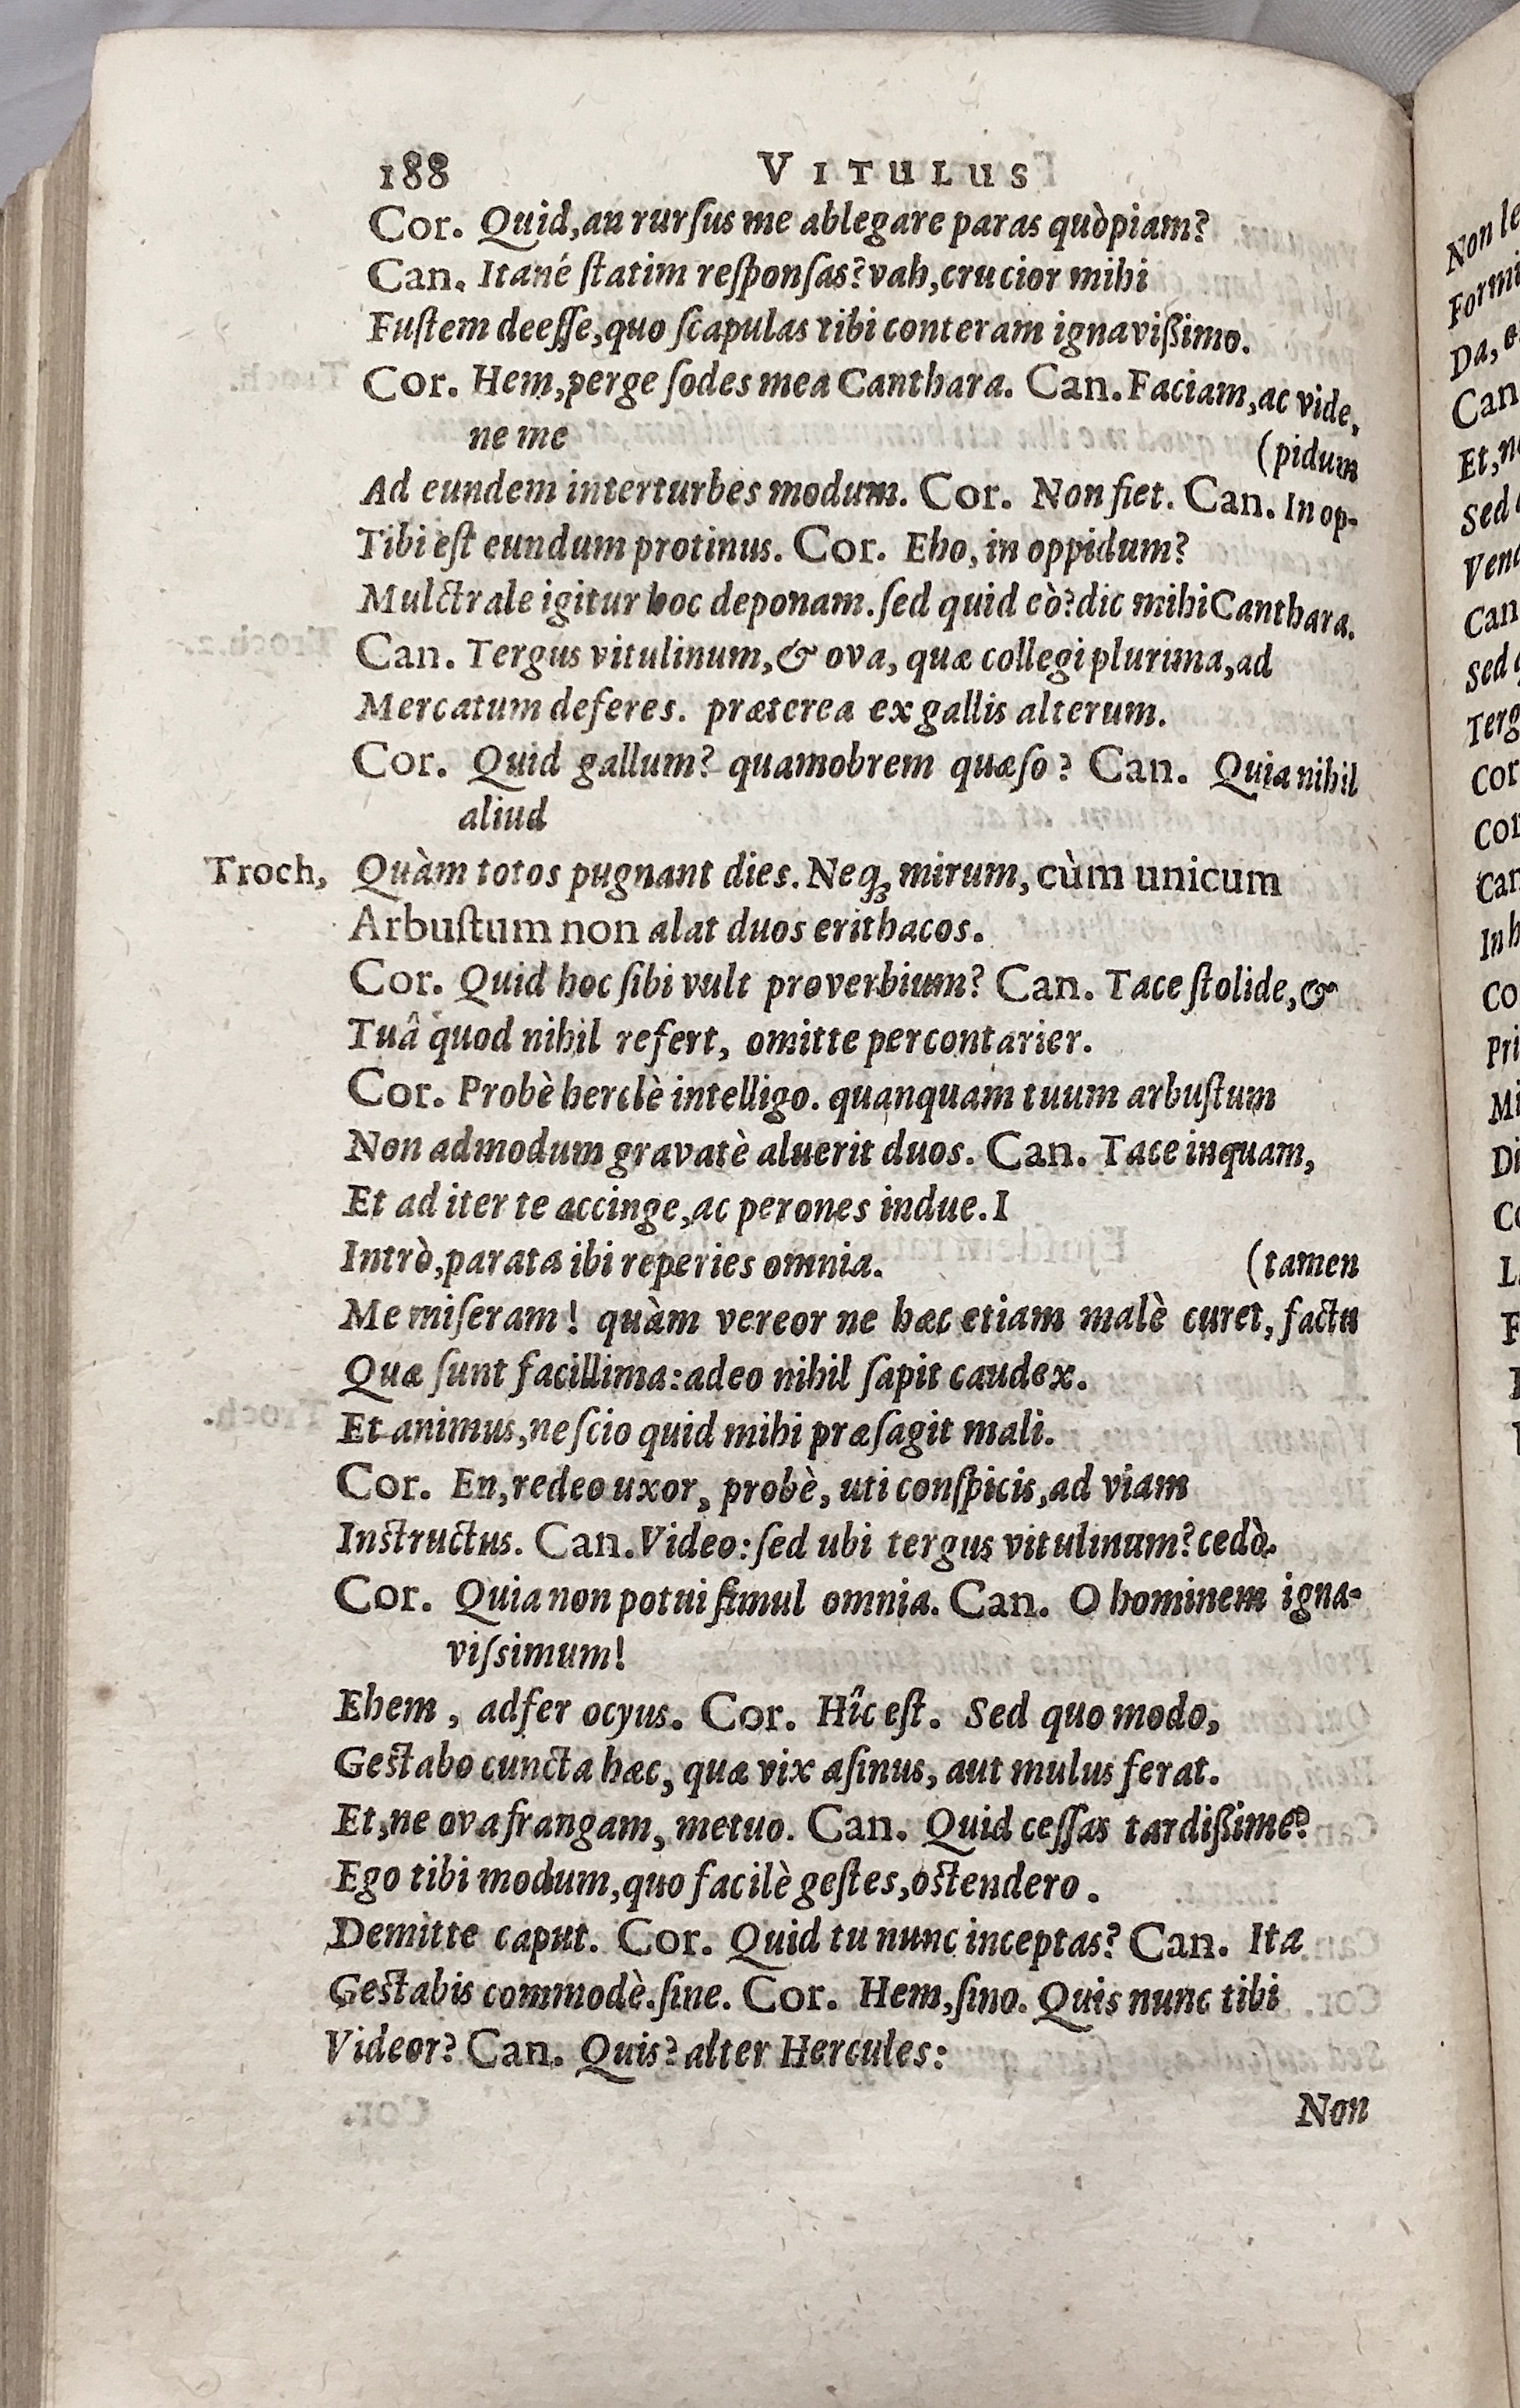 188 VITULUS
Cor. Quid, an rurſus me ablegare paras quòpiam?
Can. Itané ſtatim reſponſas? vah, crucior mihi
Fuſtem deeſſe, quo ſcapulas tibi conteram ignavißimo.
Cor. Hem, perge ſodes mea Canthara. Can. Faciam, ac vide,
ne me (pidum
Ad eundem interturbes modum. Cor. Non fiet. Can. In op-
Tibi eſt eundum protinus. Cor. Eho, in oppidum?
Mulctrale igitur hoc deponam. ſed quid eò? dic mihi Canthara.
Can. Tergus vitulinum, & ova, quæ collegi plurima, ad
Mercatum deferes. præterea ex gallis alterum.
Cor. Quid gallum? quamobrem quæſo? Can. Quia nihil
aliud
Troch, Quàm totos pugnant dies. Neq; mirum, cùm unicum
Arbuſtum non alat duos erithacos.
Cor. Quid hoc ſibi vult proverbium? Can. Tace ſtolide, &
Tuâ quod nihil refert, omitte percontarier.
Cor. Probè herclè intelligo. quanquam tuum arbuſtum
Non admodum gravatè aluerit duos. Can. Tace inquam,
Et ad iter te accinge, ac perones indue. I
Intrò, parata ibi reperies omnia. (tamen
Me miſeram! quàm vereor ne hæc etiam malè curet, factu
Quæ ſunt facillima: adeo nihil ſapit caudex.
Et animus, neſcio quid mihi præſagit mali.
Cor. En, redeo uxor, probè, uti conſpicis, ad viam
Instructus. Can. Video: ſed ubi tergus vitulinum? cedò.
Cor. Quia non potui ſimul omnia. Can. O hominem igna-
viſsimum!
Ehem, adfer ocyus. Cor. Hîc eſt. Sed quo modo,
Gestabo cuncta hæc, quæ vix aſinus, aut mulus ferat.
Et, ne ova frangam, metuo. Can. Quid ceſſas tardißime?
Ego tibi modum, quo facilè geſtes, ostendero.
Demitte caput. Cor. Quid tu nunc inceptas? Can. Ita
Gestabis commodè. ſine. Cor. Hem, ſino. Quis nunc tibi
Videor? Can. Quis? alter Hercules:
Non
Non le
Formi
Da, e
Can
Et, n
Sed
Ven
Can
Sed
Terg
Cor
Cor
Can
In h
Co
Pri
Mi
Di